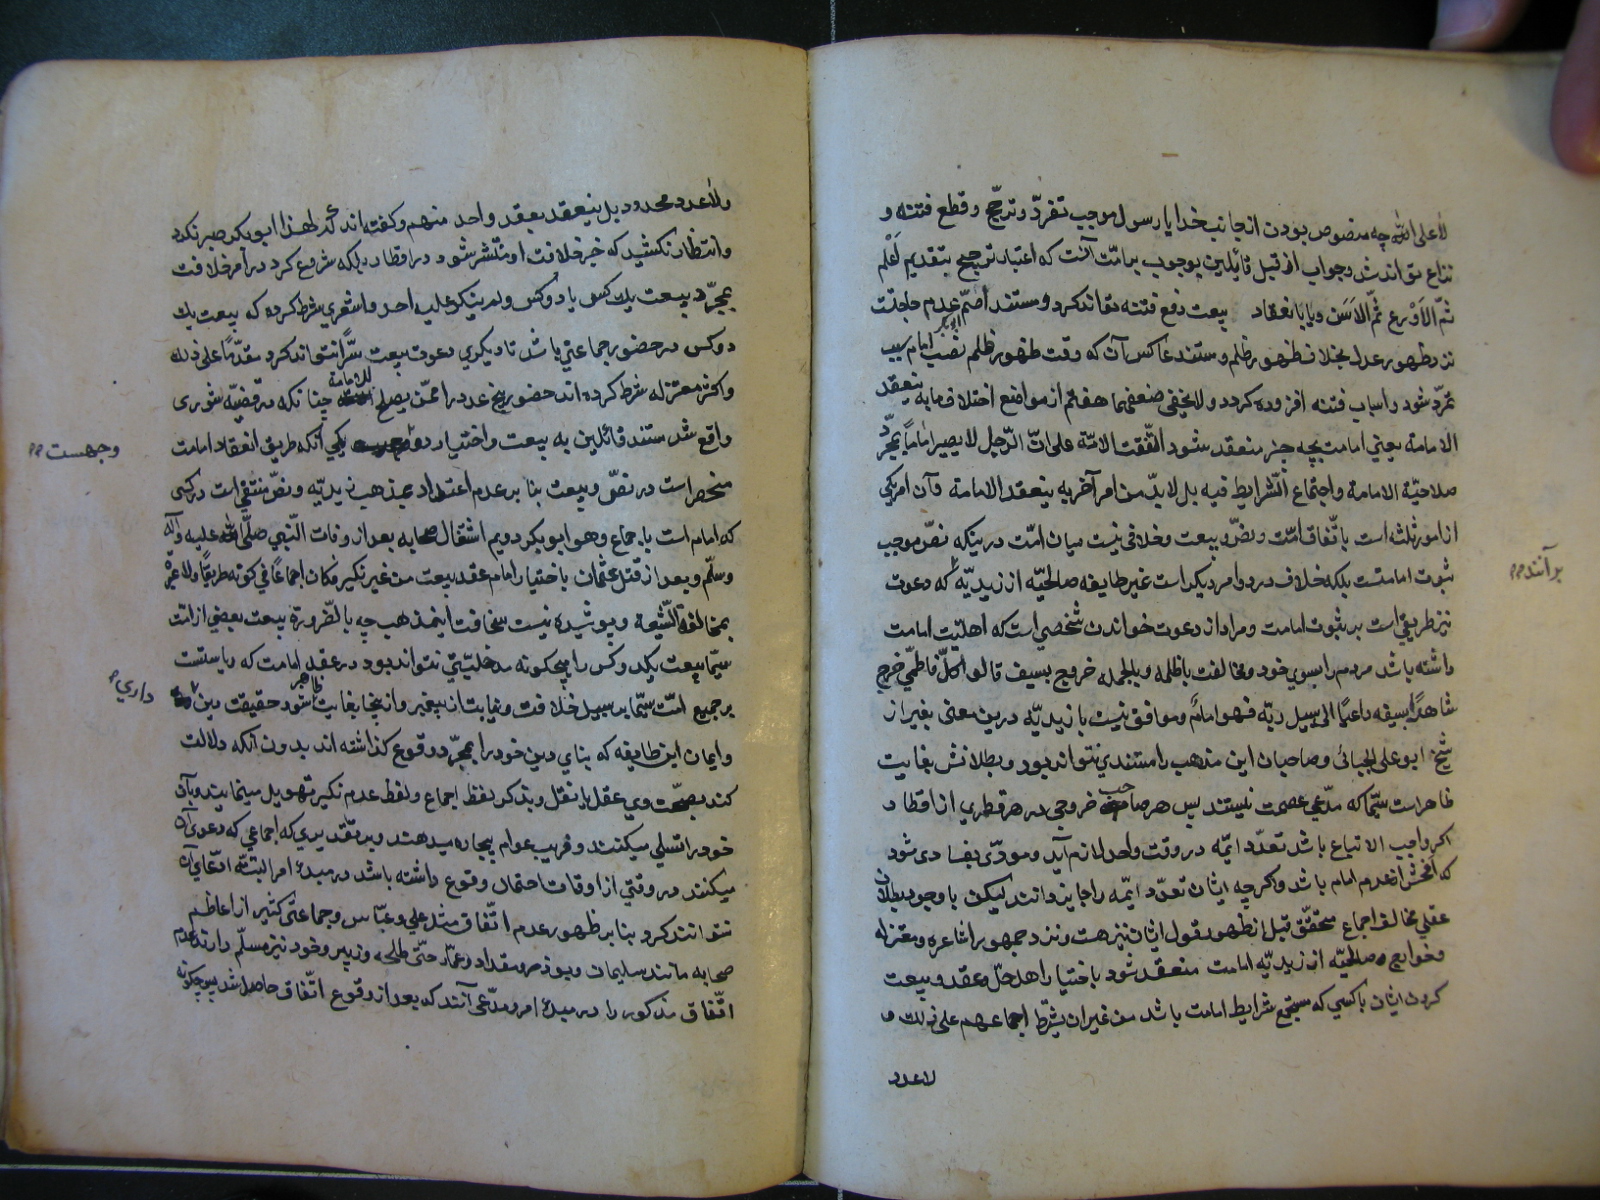 لا علی الله چه منصوص بودن از جانب خدا یا رسول موجب تفرّد و ترجّح و قطع فتنه و
نزاع تواند شد و جواب از قبل قائلین بوجوب بر امّت آنست که اعتبار ترجیح بتقدیم اَعْلم
ثمّ الاَوْرع ثمّ الاَسَن و یا بانعقاد بیعت دفع فتنه تواند کرد و مستند اصمّ عدم حاجتست
نزد ظهور عدل بخلاف ظهور ظلم و مستند عاکس آن که وقت ظهور ظلم نصب امام سبب
تمرّد شود و اسباب فتنه افزوده گردد و لا یخفی ضعفهما هفتم از مواضع اختلاف ما به ینعقد
الامامة یعنی امامت بچه چیز منعقد شود اتّفقت الامّة علی انّ الرّجل لا یصیر اماماً بمجرّد
صلاحیّة الامامة و اجتماع الشّرایط فیه بل لا بدّ من امر آخر به ینعقد الامامة و آن امر یکی
از امور ثلثه است باتّفاق امّت و نصّ و بیعت و خلافی نیست میان امّت در اینکه نصّ موجب
ثبوت امامتست بلکه خلاف در دو امر دیگر است غیر طایفه صالحیّه از زیدیّه که دعوت
بر آنند
نیز طریقی است بر ثبوت امامت و مراد از دعوت خواندن شخصی است که اهلیّت امامت
داشته باشد مردم را بسوی خود و مخالفت با ظلمه و بالجمله خروج بسیف قالوا کلّ فاطمیّ خرج
شاهراً بسیفه داعیاً الی سبیل ربّه فهو امامٌ و موافق نیست با زیدیّه درین معنی بغیر از
شیخ ابو علی الجبائی و صاحبان این مذهب را مستندی نتواند بود و بطلانش بغایت
ظاهر است سیّما که مدّعی عصمت نیستند پس هر صاحب خروجی در هر قطری از اقطار
اگر واجب الاتباع باشد تعدّد ایمّه در وقت واحد لازم آید و مودّی بفسادی شود
که افحش از عدم امام باشد و اگر چه ایشان تعدّد ایمّه را جایز دانند لیکن با وجود بطلان
عقلی مخالف اجماع محقّق قبل از ظهور قول ایشان نیز هست و نزد جمهور اشاعره و معتزله
و خوارج و صالحیّه از زیدیّه امامت منعقد شود باختیار اهل حلّ و عقد و بیعت
کردن ایشان با کسی که مستجمع شرایط امامت باشد من غیر ان یشترط اجماعهم علی ذلک و
لا عدد
ولا عدد محدود بل ینعقد بعقد واحد منهم و گفته اند که لهذا ابو بکر صبر نکرد
و انتظار نکشید که خبر خلافت او منتشر شود در اقطار بلکه شروع کرد در امر خلافت
بمجرّد بیعت یک کس یا دو کس و لم ینکر علیه احد و اشعری شرط کرده که بیعت یک
دو کس در حضور جماعتی باشد تا دیگری دعوت بیعت سرّاً نتواند کرد مقدّماً علی ذلک
و اکثر معتزله شرط کرده اند حضور پنج عدد را ممّن یصلح للامامة چنانکه در قضیّه شوری
واقع شد مستند قائلین به بیعت و اختیار دو وجهست یکی آنکه طریق انعقاد امامت
منحصر است در نصّ و بیعت بنا بر عدم اعتداد بمذهب زیدیّه و نصّ منتفی است در کسی
که امام است باجماع و هو ابو بکر دویم اشتغال صحابه بعد از وفات النّبی صلّی الله علیه و آله
و سلّم و بعد از قتل عثمان باختیار امام و عقد بیعت من غیر نکیر فکان اجماعاً فی کونه طریقاً و لا عبرة
بمخالفة الشّیعة و پوشیده نیست سخافت این مذهب چه بالضّروره بیعت بعضی از امّت
سیّما بیعت یک دو کس را هیچگونه مدخلیّتی نتواند بود در عقد امامت که ریاستست
بر جمیع امّت سیّما بر سبیل خلافت و نیابت از پیغمبر و از اینجا بغایت ظاهر شود حقیقت دین داری
و ایمان این طایفه که بنای دین خود را بمجرّد وقوع گذاشته اند بدون آنکه دلالت
کند بصحّت وی عقل یا نقل و بذکر لفظ اجماع و لفظ عدم نکیر تهویل مینمایند و بآن
خود را تسلّی میکنند و فریب عوام بیچاره میدهند و بر تقدیری که اجماعی که دعوی آن
میکنند در وقتی از اوقات احتمال وقوع داشته باشد در مبدء امر البتّه ادّعای آن
نتوانند کرد بنا بر ظهور عدم اتّفاق مثل علی و عبّاس و جماعتی کثیر از اعاظم
صحابه مانند سلیمان و بوذر و مقداد و عمّار حتّی طلحه و زبیر و خود نیز مسلّم دارند عدم
اتّفاق مذکور را در مبدء امر و مدّعی آنند که بعد از وقوع اتّفاق حاصل شد پس چگونه